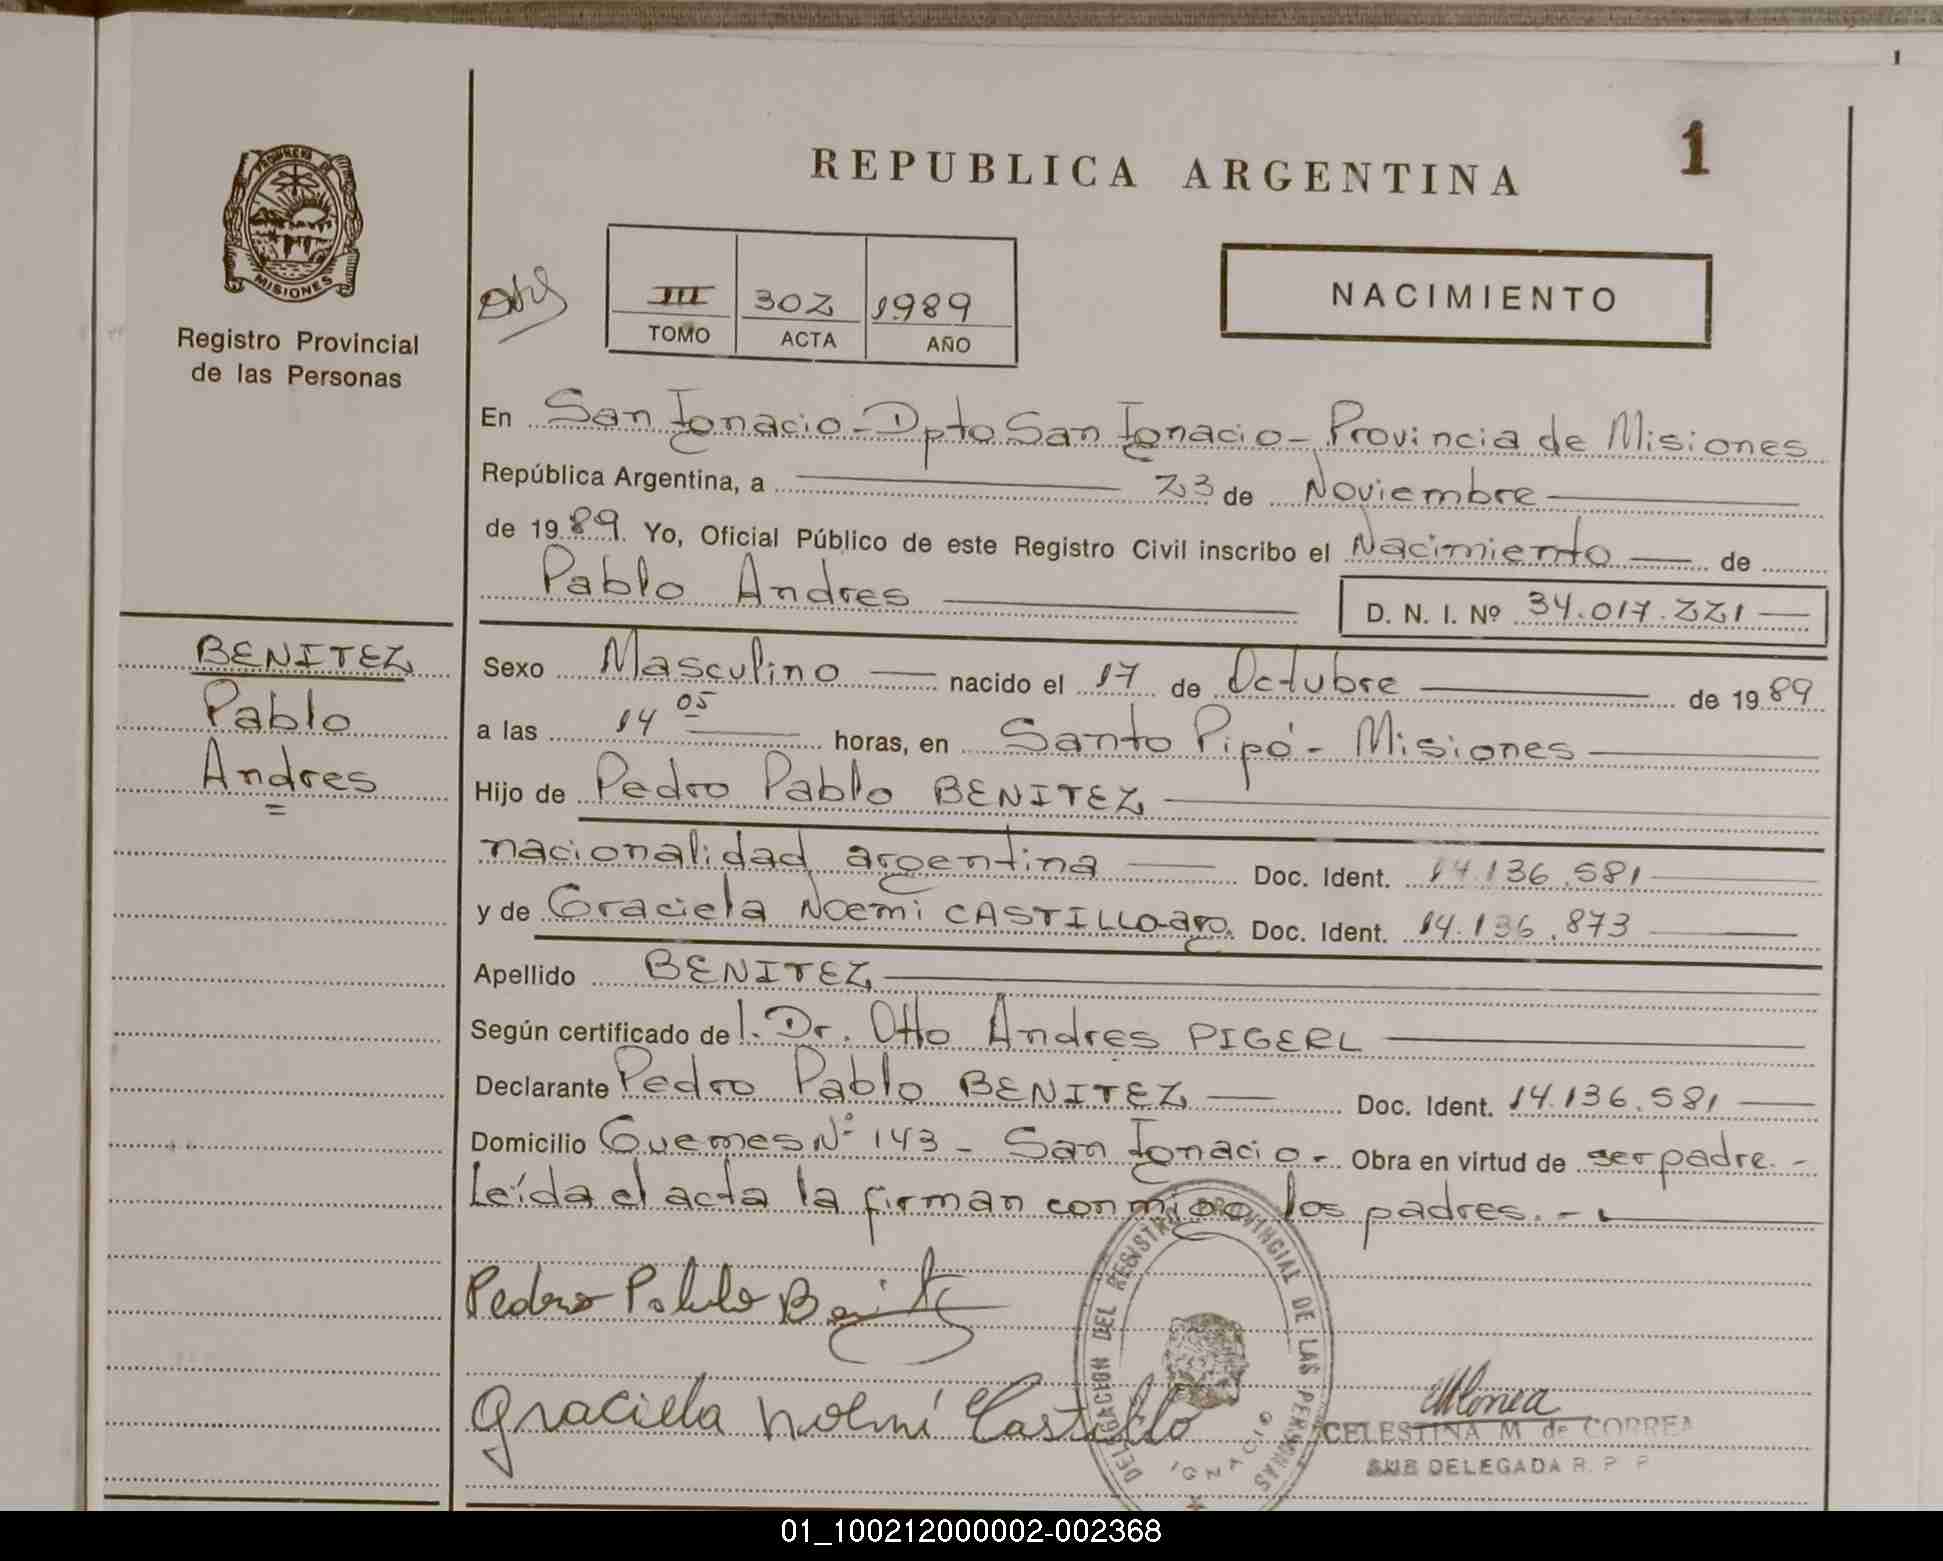 1
REPUBLICA ARGENTINA
1
PROVINCIA DE
MISIONES
Registro Provincial
de las Personas
III 302 1989
TOMO ACTA AÑO
NACIMIENTO
En San Ignacio - Dpto San Ignacio - Provincia de Misiones
República Argentina, a 23 de Noviembre
de 1989. Yo, Oficial Público de este Registro Civil inscribo el Nacimiento de
Pablo Andres
D. N. I. Nº 34.017.221
BENITEZ
Pablo
Andres
Sexo Masculino nacido el 17 de Octubre de 1989
a las 14 05 horas, en Santo Pipó - Misiones
Hijo de Pedro Pablo BENITEZ
nacionalidad argentina Doc. Ident. 14.136.581
y de Graciela Noemi CASTILLO-arg. Doc. Ident. 14.136.873
Apellido BENITEZ
Según certificado de l. Dr. Otto Andres PIGERL
Declarante Pedro Pablo BENITEZ Doc. Ident. 14.136.581
Domicilio Guemes Nº 143 - San Ignacio - Obra en virtud de ser padre. -
Leída el acta la firman conmigo los padres. -
Pedro Pablo Benitez
Graciela Noemí Castillo
DELEGACION DEL REGISTRO PROVINCIAL DE LAS PERSONAS
IGNACIO
CELESTINA M de CORREA
SUB DELEGADA R. P. P
01_100212000002-002368